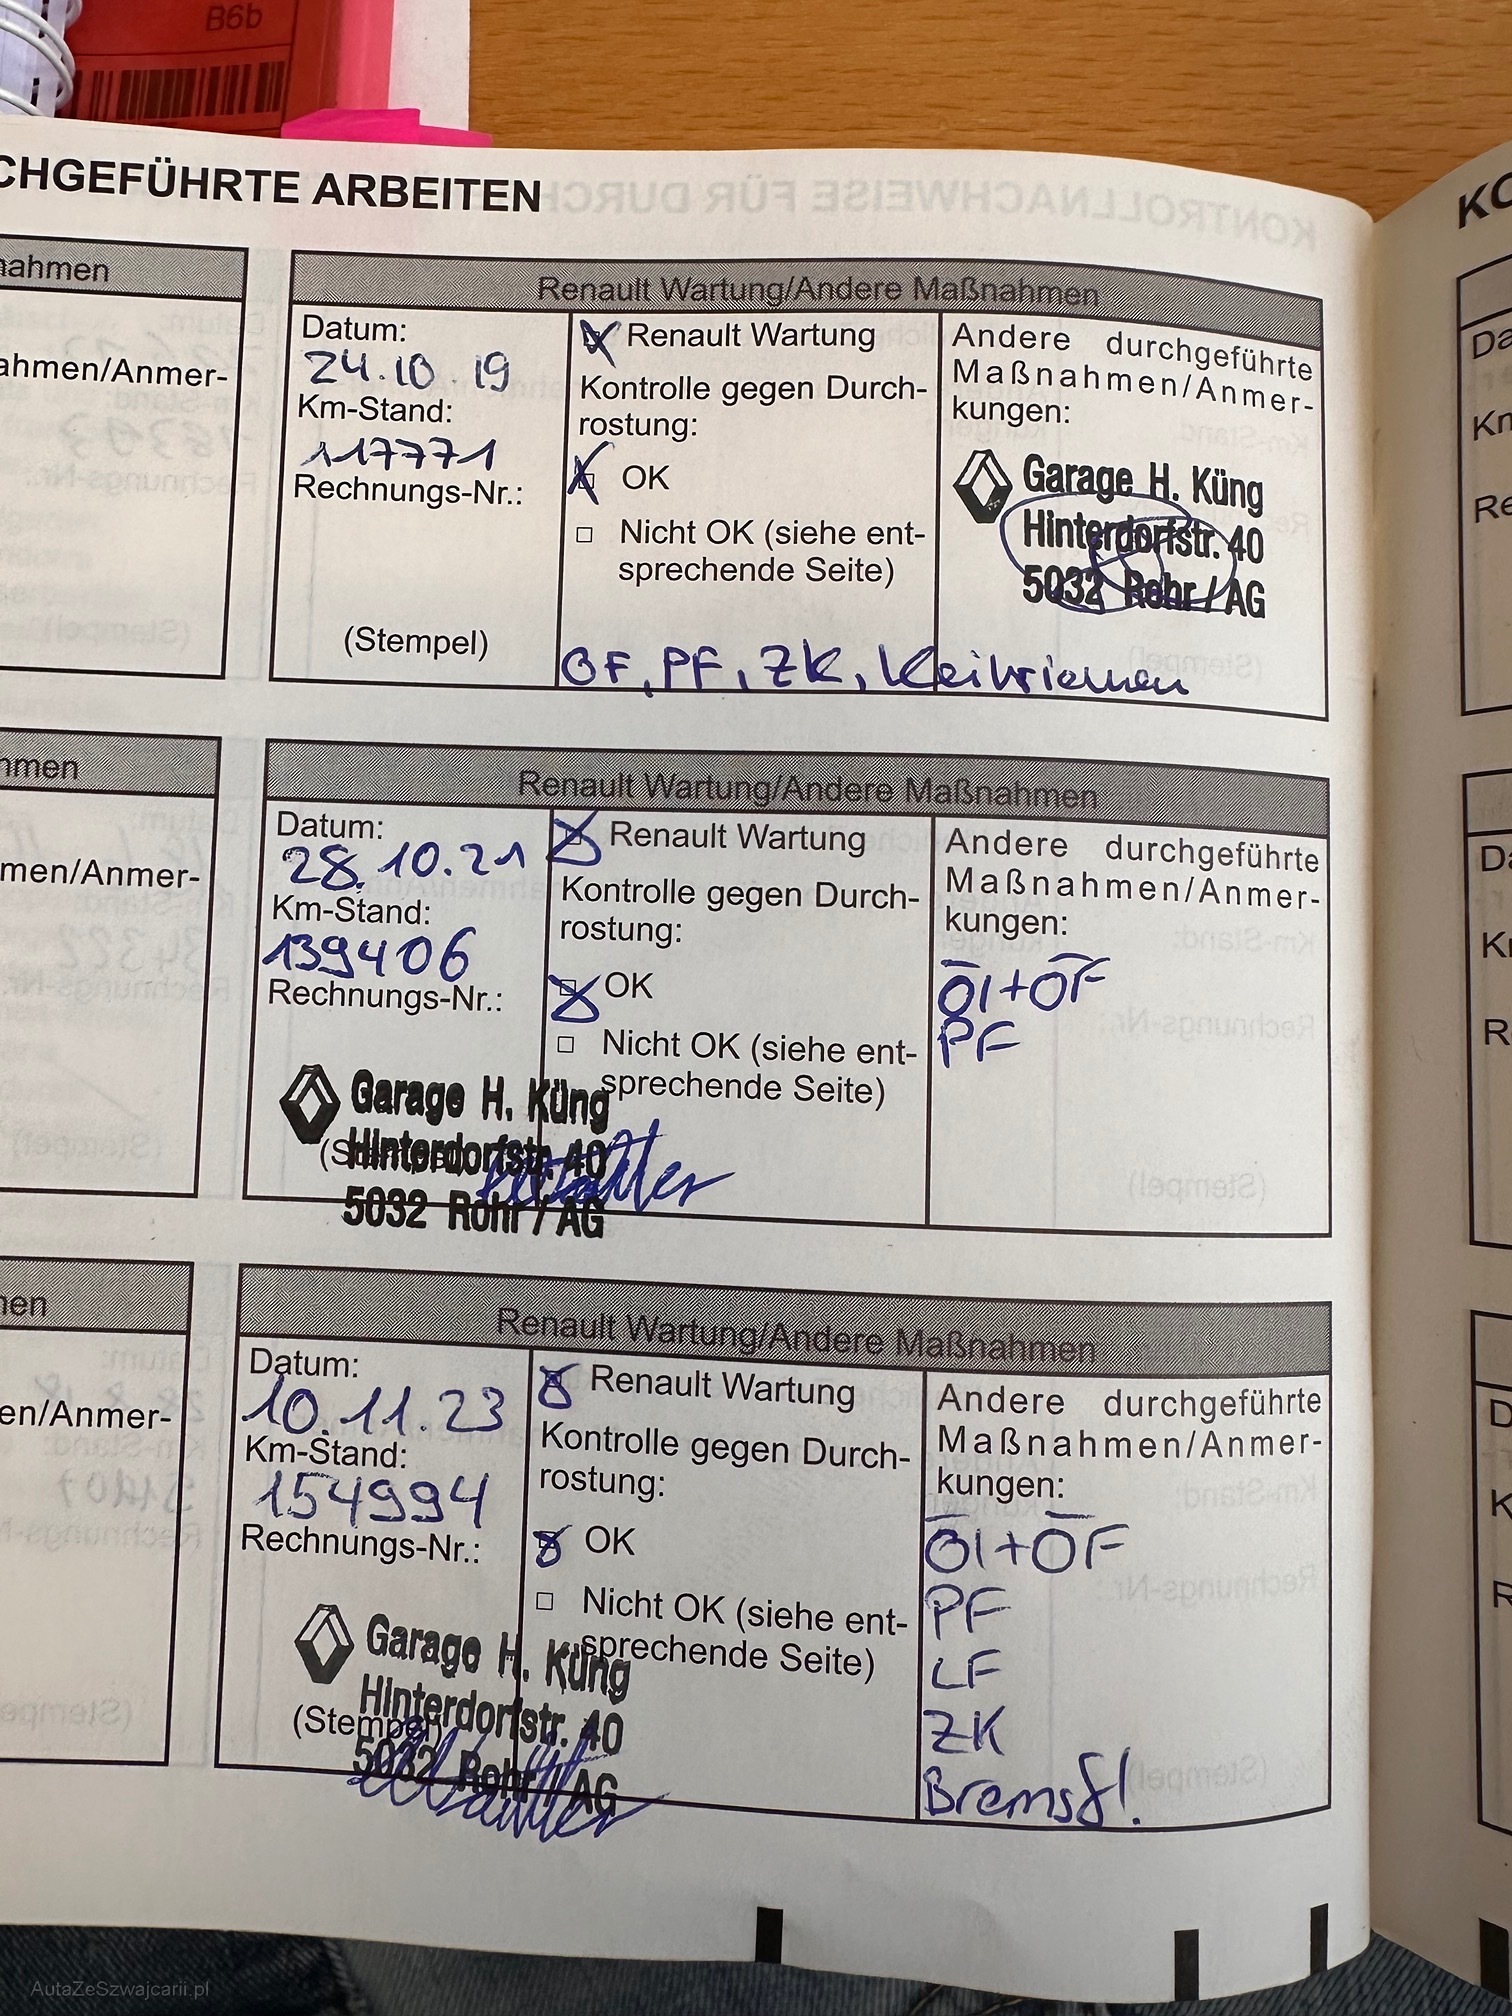 B6b
CHGEFÜHRTE ARBEITEN
nahmen
ahmen/Anmer-
Renault Wartung/Andere Maßnahmen
Datum:
24.10.19
Km-Stand:
117771
Rechnungs-Nr.:
(Stempel)
Renault Wartung
Kontrolle gegen Durch-
rostung:
OK
Nicht OK (siehe ent-
sprechende Seite)
Andere durchgeführte
Maßnahmen/Anmer-
kungen:
Garage H. Küng
Hinterdorfstr. 40
5032 Rohr / AG
ÖF, PF, ZK, Keilriemen
hmen
men/Anmer-
Renault Wartung/Andere Maßnahmen
Datum:
28.10.21
Km-Stand:
139406
Rechnungs-Nr.:
Garage H. Küng
Hinterdorfstr. 40
5032 Rohr / AG
Renault Wartung
Kontrolle gegen Durch-
rostung:
OK
Nicht OK (siehe ent-
sprechende Seite)
Andere durchgeführte
Maßnahmen/Anmer-
kungen:
Öl+ÖF
PF
en
en/Anmer-
Renault Wartung/Andere Maßnahmen
Datum:
10.11.23
Km-Stand:
154994
Rechnungs-Nr.:
Garage H. Küng
Hinterdorfstr. 40
(Stempel)
5032 Rohr / AG
Renault Wartung
Kontrolle gegen Durch-
rostung:
OK
Nicht OK (siehe ent-
sprechende Seite)
Andere durchgeführte
Maßnahmen/Anmer-
kungen:
Öl+ÖF
PF
LF
ZK
Bremsfl.
KO
Da
Km
Re
Da
K
R
D
K
R
AutaZeSzwajcarii.pl